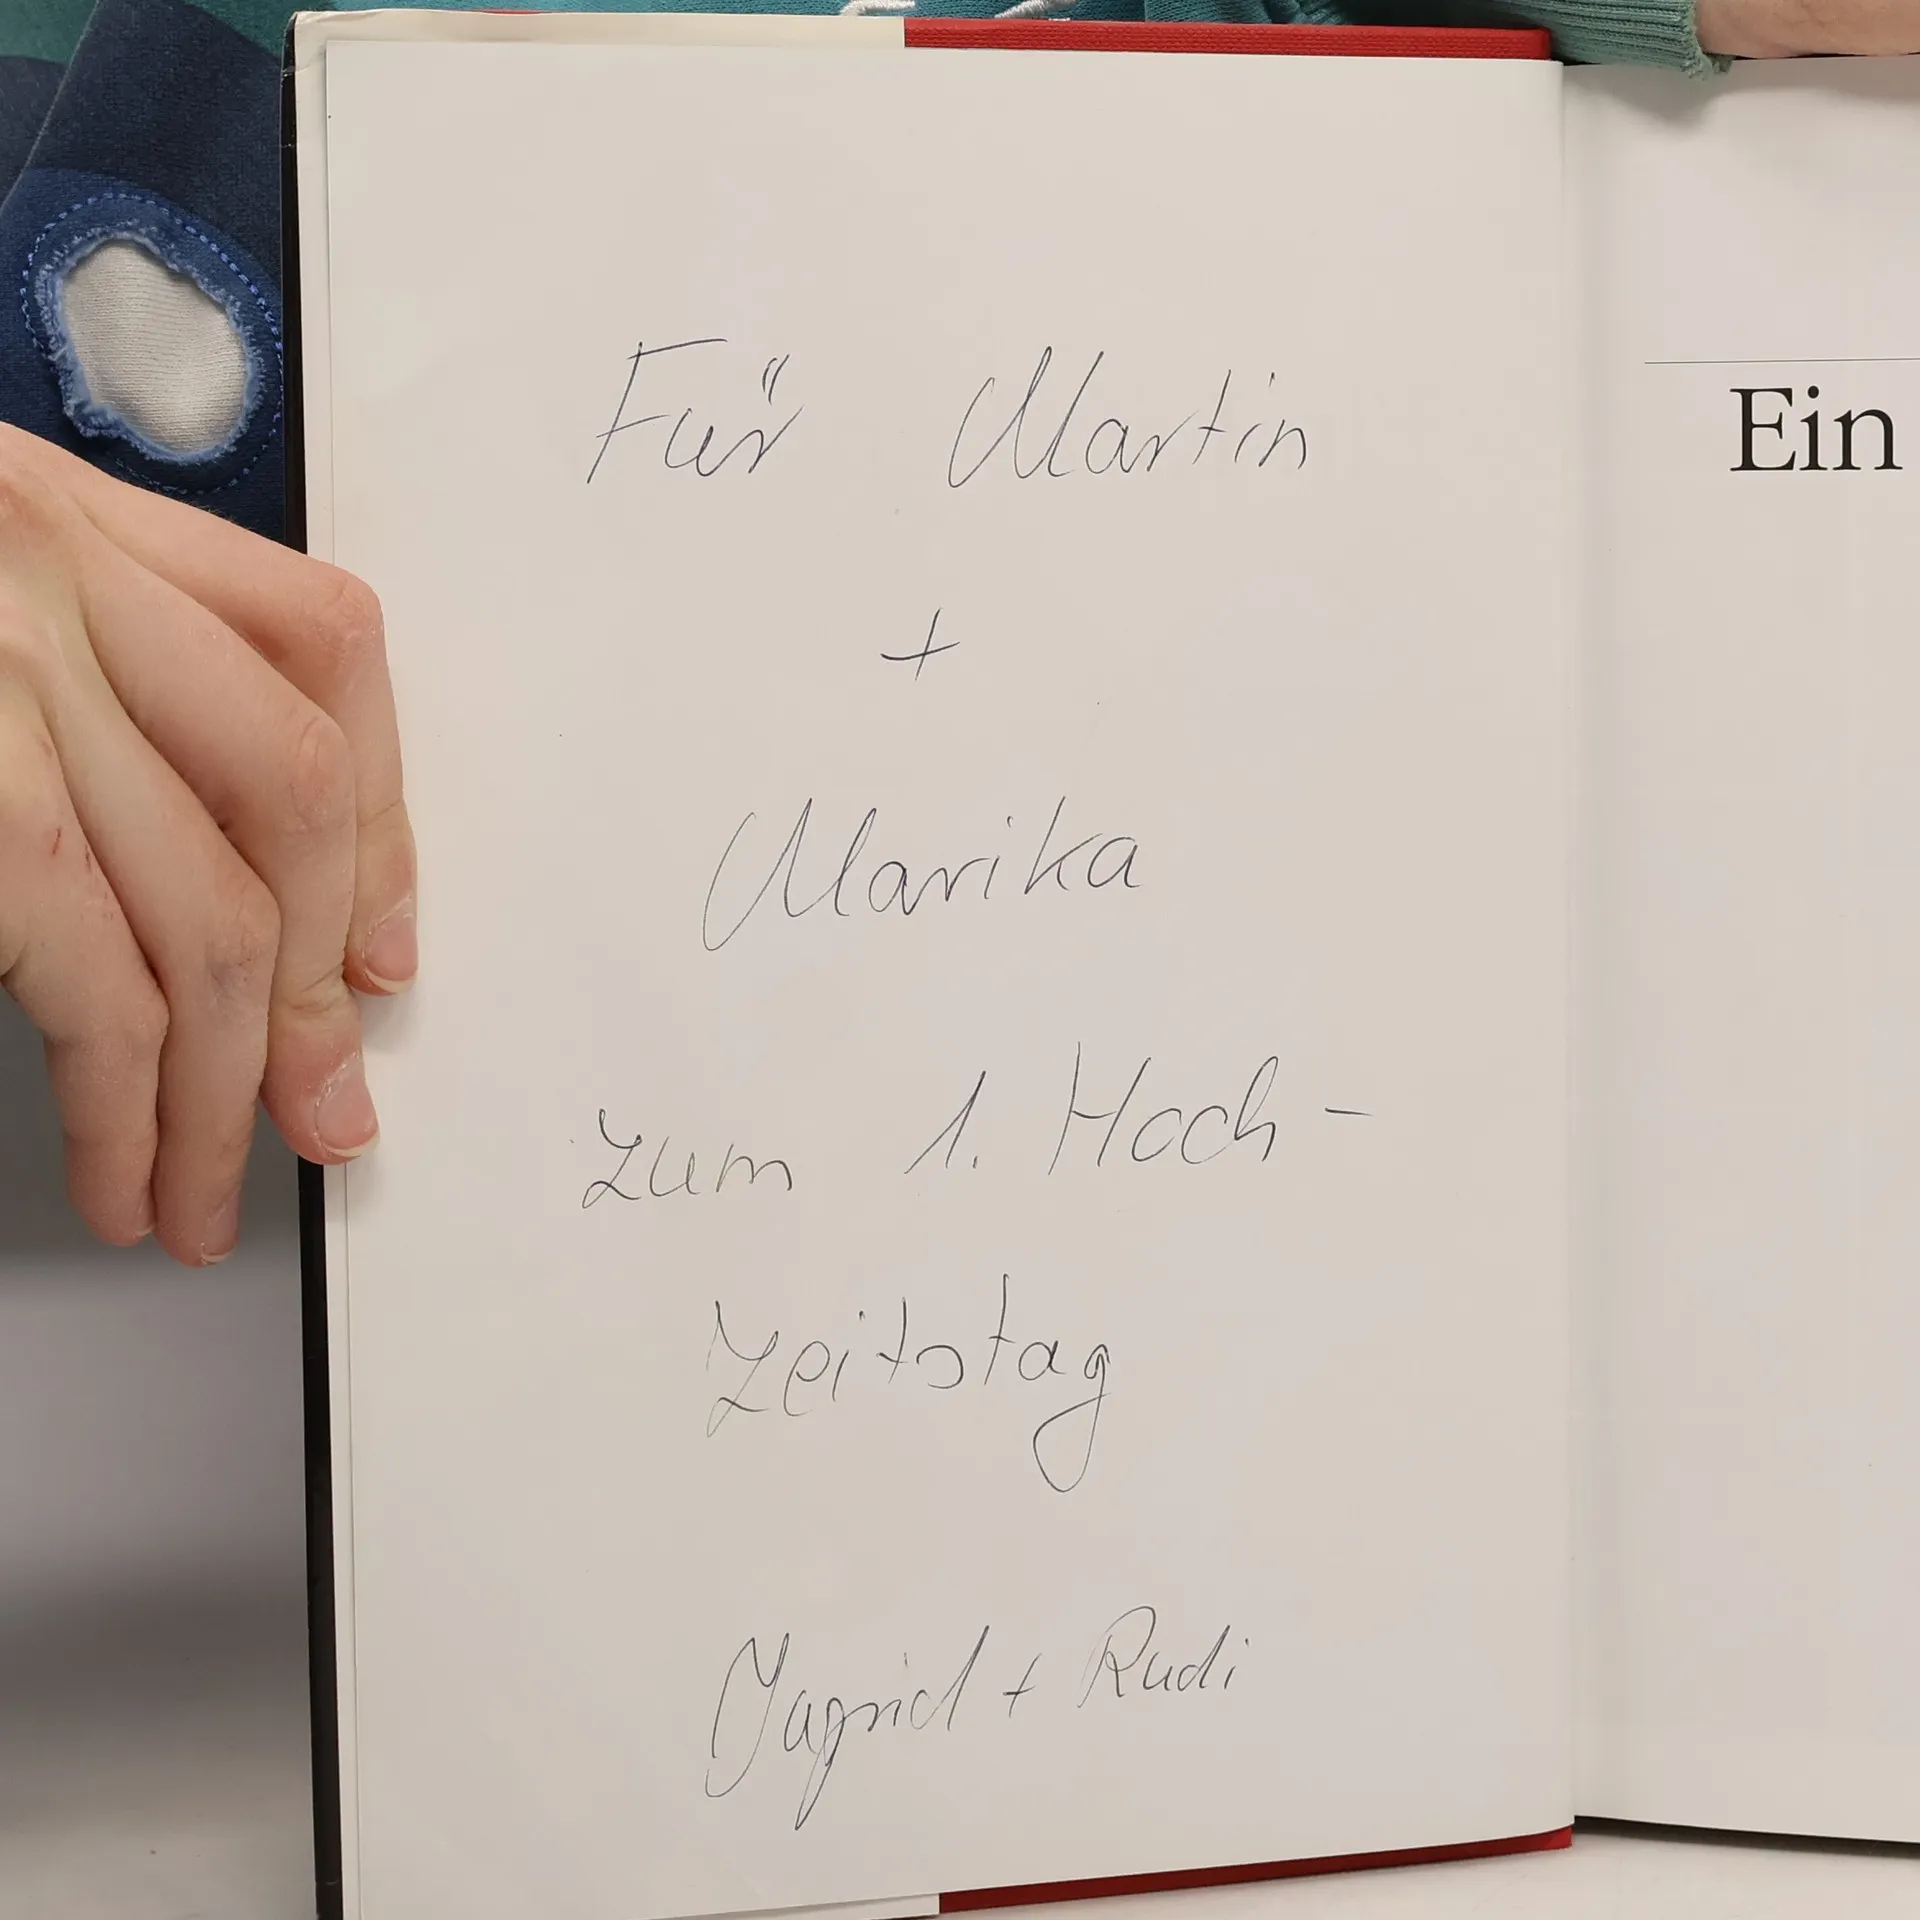 Für Martin
+
Marika
zum 1. Hoch-
zeitstag
Ingrid + Rudi
Ein